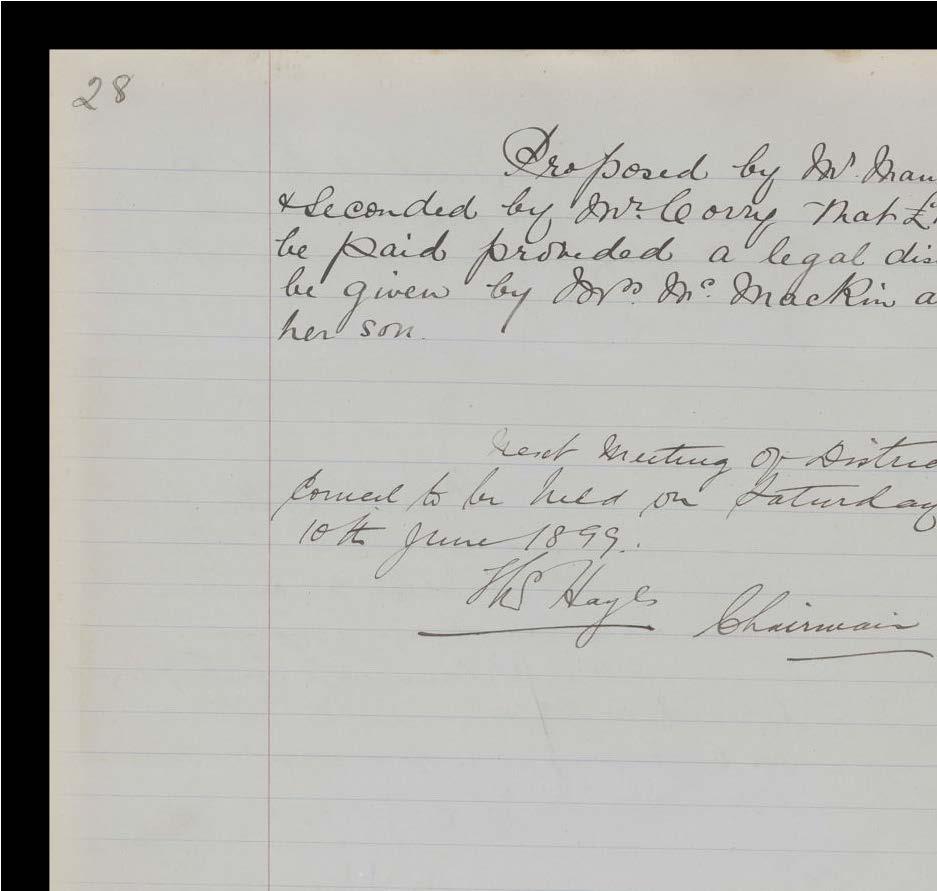 28
Proposed by Mr. Man
& Seconded by Mr. Corry That £
be paid provided a legal dis
be given by Mrs. Mc. Mackin a
her son.
Next Meeting of Distric
Council to be held on Saturday
10th June 1899.
Thos Hayes Chairman